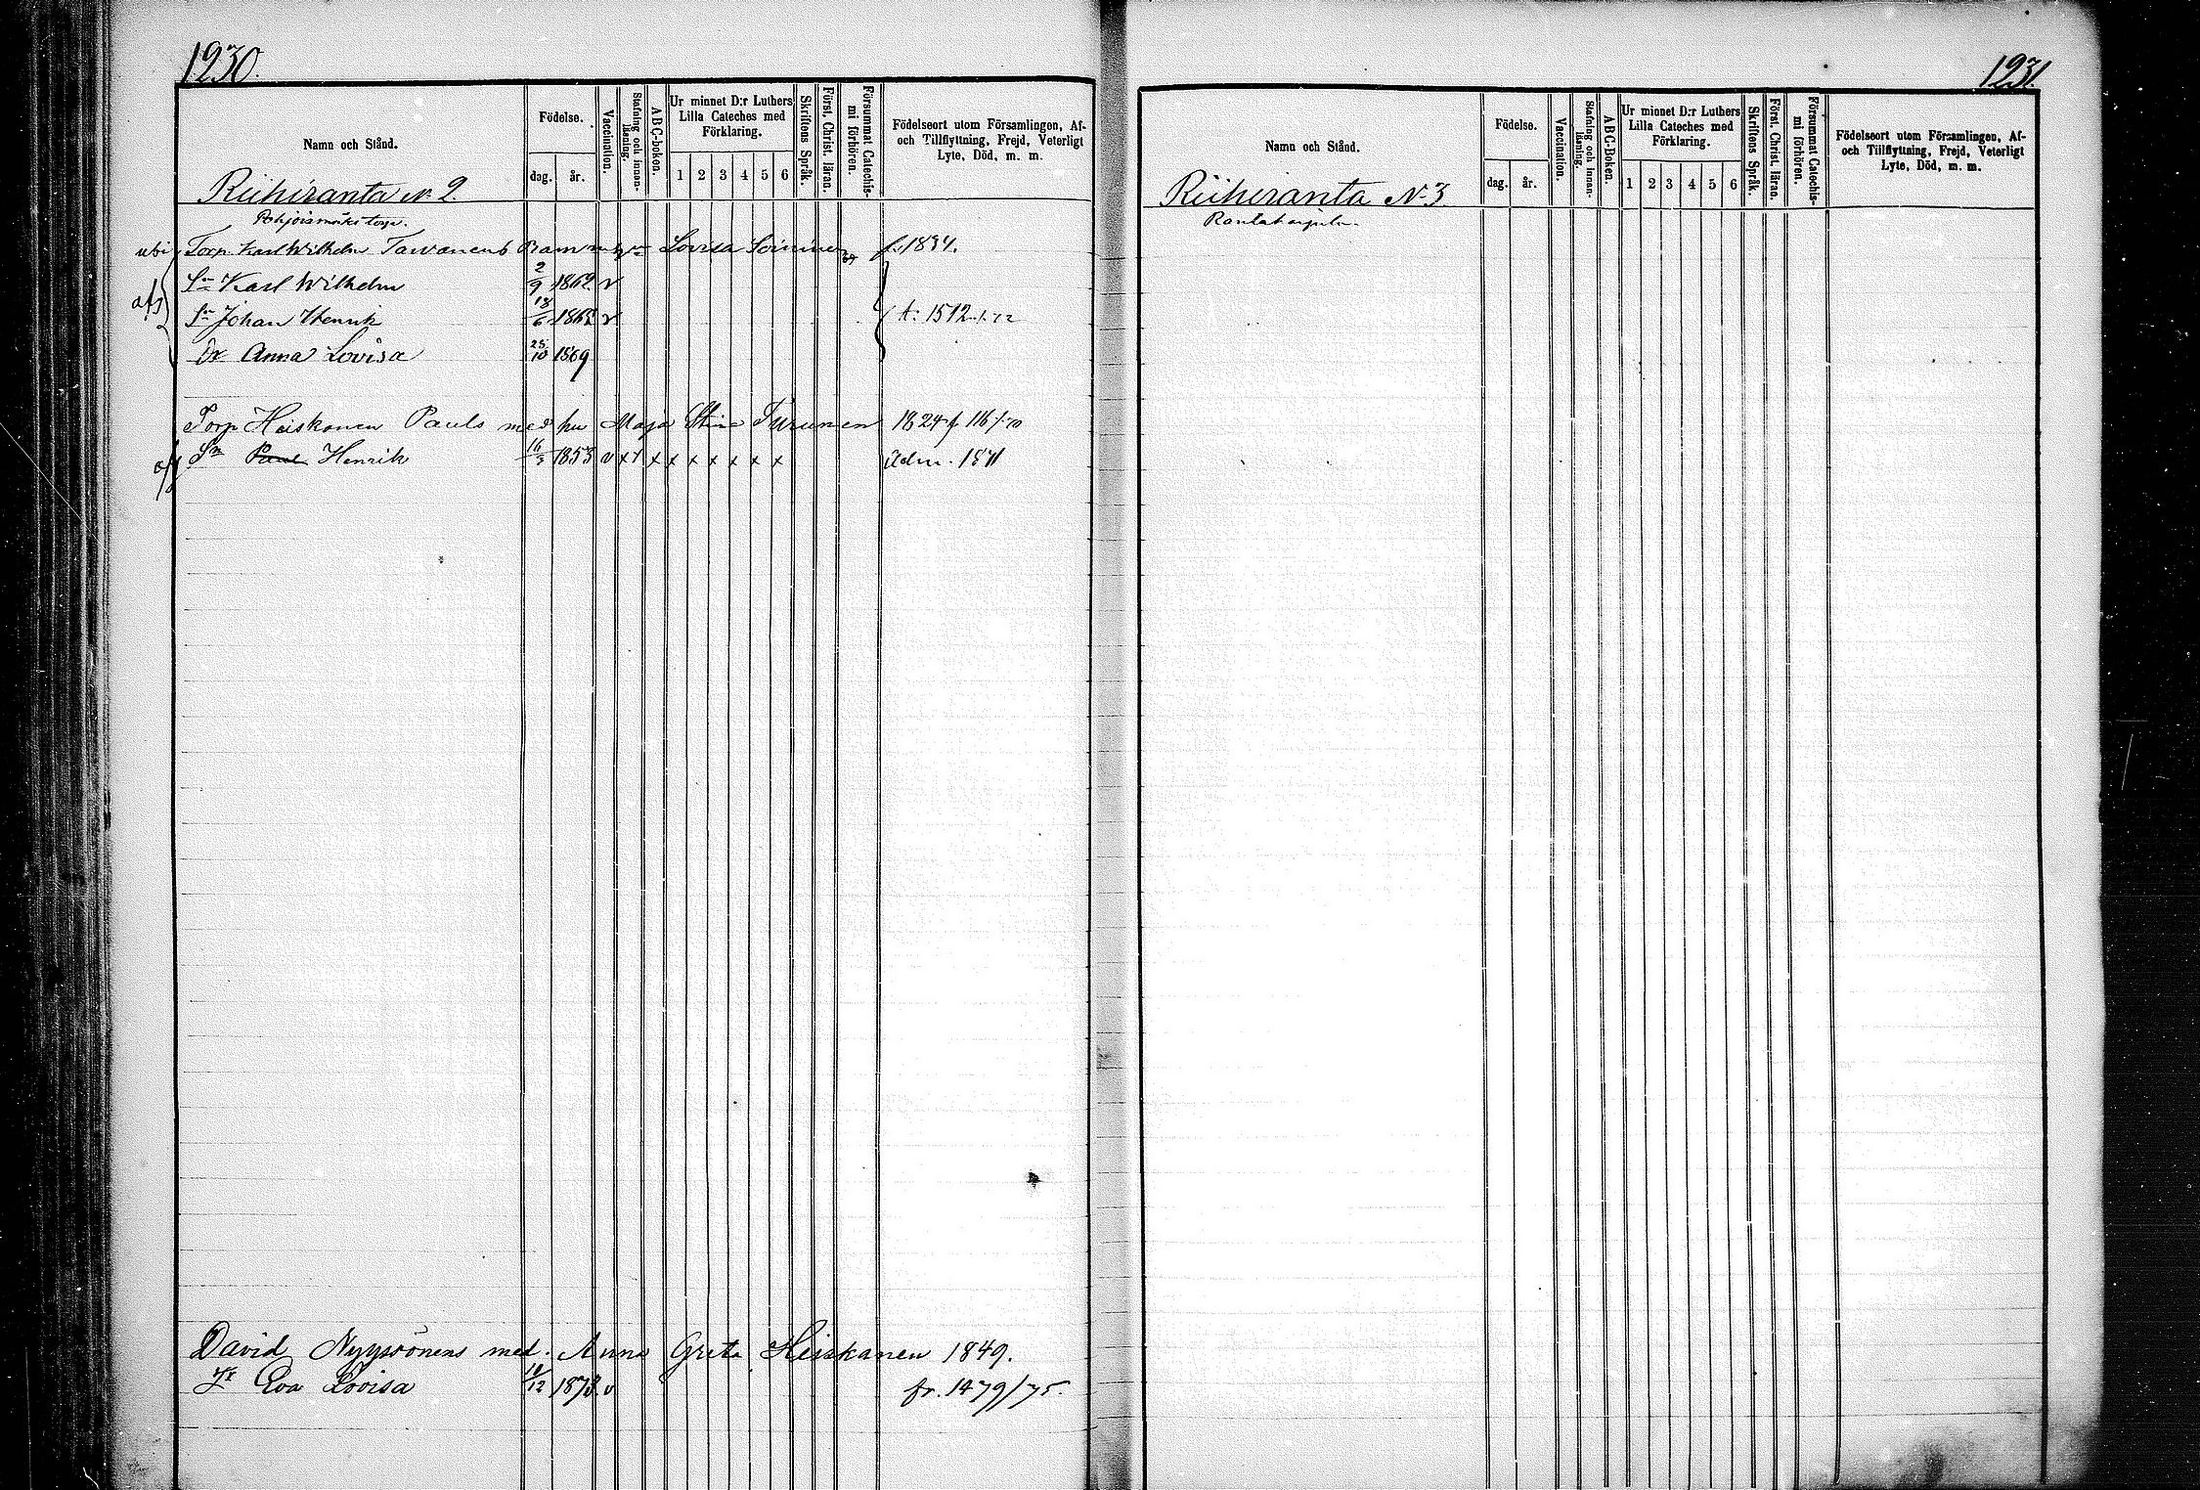 1230.
Namn och Stånd.
Födelse.
dag. år.
Vaccination.
Stafning och innan-
läsning.
ABC-boken.
Ur minnet D:r Luthers
Lilla Cateches med
Förklaring.
1 2 3 4 5 6
Skriftens Språk.
Först. Christ. läran.
Försummat Catechis-
mi förhören.
Födelseort utom Församlingen, Af-
och Tillflyttning, Frejd, Veterligt
Lyte, Död, m. m.
Riihiranta N. 2.
Pohjoismäki torp.
Torp. Karl Wilhelm Tawanens Barn Lovisa f. 1834.
Sn Karl Wilhelm 2/9 1862 v
afs Sn Johan Henrik 18/6 v 1512
Dr Anna Lovisa 25/10 1869
Torp Heiskanen Pauls med hu Maja Stina Turunen 1824
Sn Paul Henrik 16/3 1853 v x x x x x x x x x Adm. 1871
David Nyyssönens med. Anna Greta Heiskanen 1849.
Dr Eva Lovisa /12 1873 v fr. 1479/75.
1231.
Namn och Stånd.
Födelse.
dag. år.
Vaccination.
Stafning och innan-
läsning.
ABC-Boken.
Ur minnet D:r Luthers
Lilla Cateches med
Förklaring.
1 2 3 4 5 6
Skriftens Språk.
Först. Christ. läran.
Försummat Catechis-
mi förhören.
Födelseort utom Församlingen, Af-
och Tillflyttning, Frejd, Veterligt
Lyte, Död, m. m.
Riihiranta N. 3